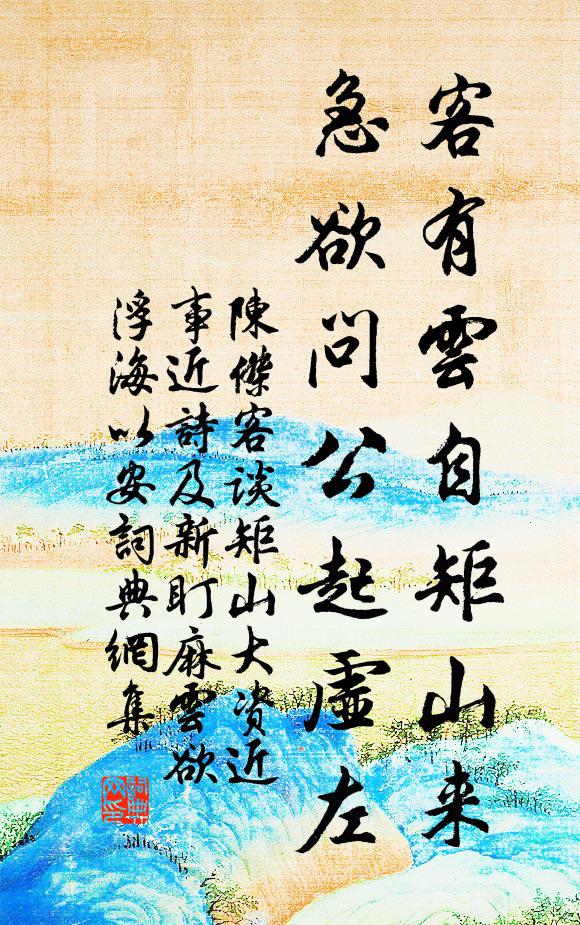 客有雲自矩山来
急欲問公起虛左
陳傑客談矩山大資近
事近詩及新盯麻雲欲
浮海以安詞典網集